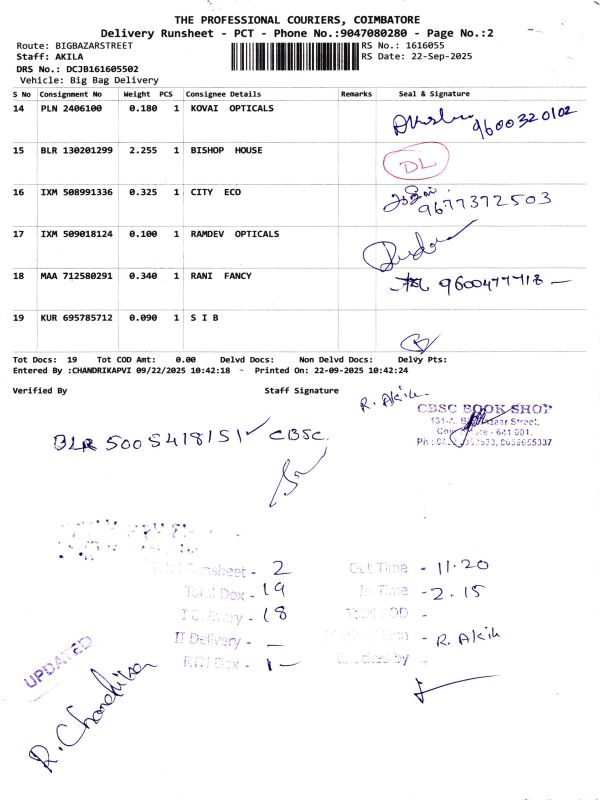 THE PROFESSIONAL COURIERS, COIMBATORE
Delivery Runsheet - PCT - Phone No.:9047080280 - Page No.:2
Route: BIGBAZARSTREET RS No.: 1616055
Staff: AKILA RS Date: 22-Sep-2025
DRS No.: DCJB161605502
Vehicle: Big Bag Delivery
S No Consignment No Weight PCS Consignee Details Remarks Seal & Signature
14 PLN 2406100 0.180 1 KOVAI OPTICALS 9600320102
15 BLR 130201299 2.255 1 BISHOP HOUSE DL
16 IXM 508991336 0.325 1 CITY ECO 9677372503
17 IXM 509018124 0.100 1 RAMDEV OPTICALS
18 MAA 712580291 0.340 1 RANI FANCY 9600477718
19 KUR 695785712 0.090 1 S I B
Tot Docs: 19 Tot COD Amt: 0.00 Delvd Docs: Non Delvd Docs: Delvy Pts:
Entered By :CHANDRIKAPVI 09/22/2025 10:42:18 - Printed On: 22-09-2025 10:42:24
Verified By Staff Signature
R. Akila
CBSC BOOK SHOP
Street,
641 001.
BLR 5005418151 ✓ CBSC.
Total Runsheet - 2 Out Time - 11.20
Total Dox - 19 In Time - 2.15
I Delivery - 18
II Delivery - — Sign - R. Akila
RTN Dox - 1 — Checked by -
UPDATED
R. Chandrika